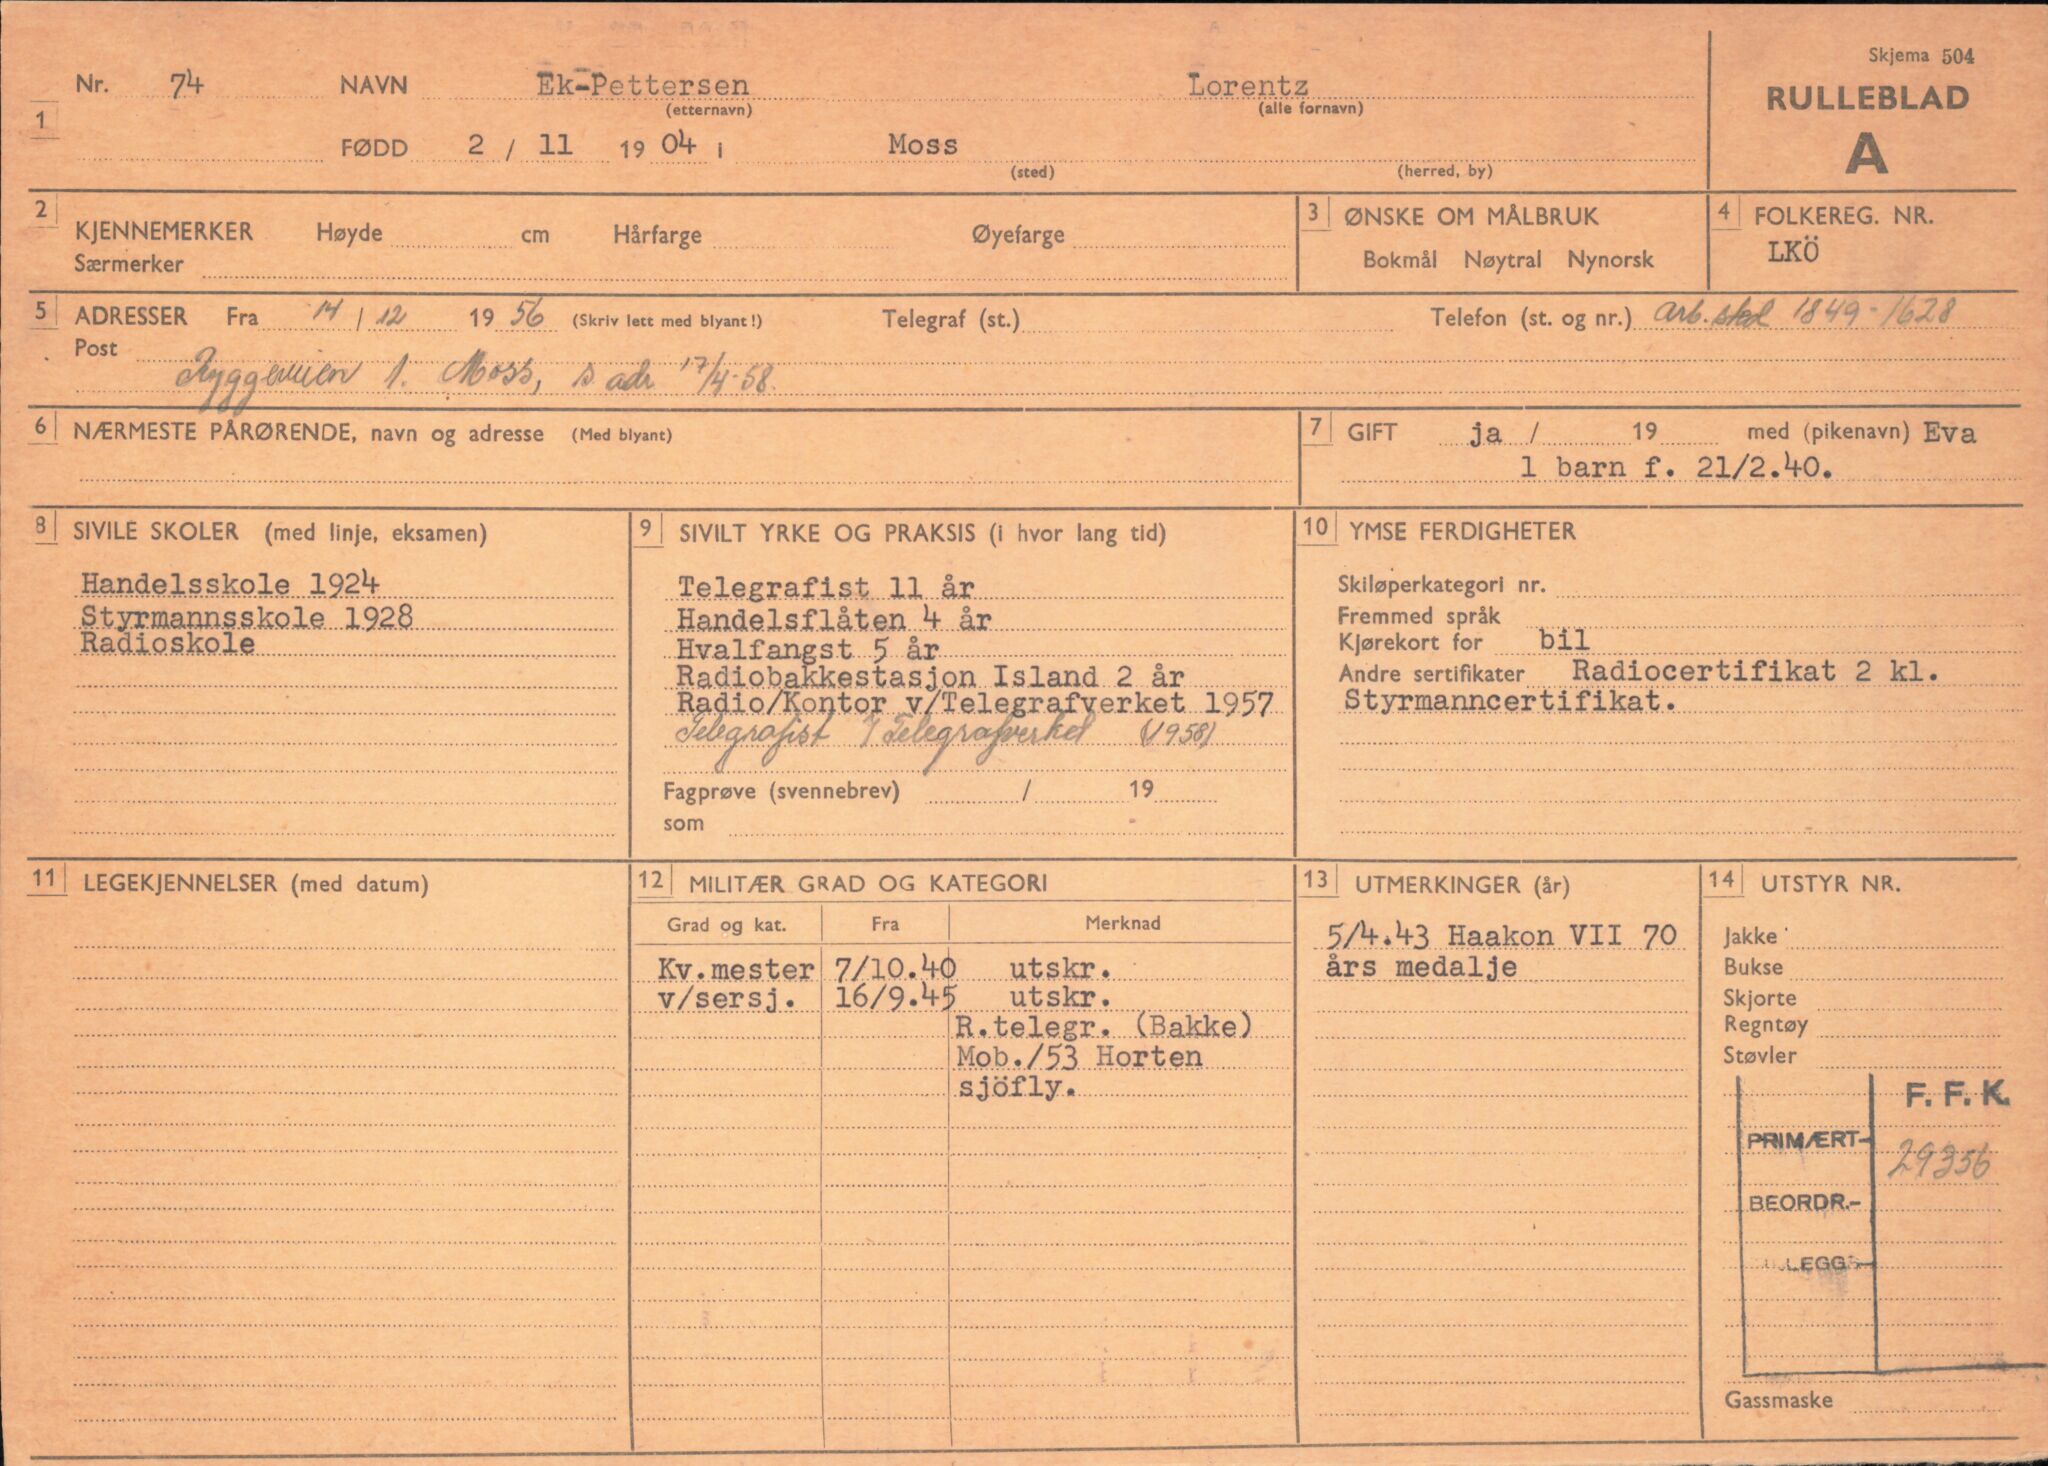 Skjema 504
Nr. 74 NAVN Ek-Pettersen Lorentz RULLEBLAD
1 (etternavn) (alle fornavn)
FØDD 2 / 11 19 04 i Moss A
(sted) (herred, by)
2 KJENNEMERKER Høyde cm Hårfarge Øyefarge
Særmerker
3 ØNSKE OM MÅLBRUK
Bokmål Nøytral Nynorsk
4 FOLKEREG. NR.
LKÖ
5 ADRESSER Fra 14 / 12 19 56 (Skriv lett med blyant!) Telegraf (st.) Telefon (st. og nr.) arb. sted 1849-1628
Post
Ryggeveien 1. Moss, s adr 17/4-58.
6 NÆRMESTE PÅRØRENDE, navn og adresse (Med blyant)
7 GIFT ja / 19 med (pikenavn) Eva
1 barn f. 21/2.40.
8 SIVILE SKOLER (med linje, eksamen)
Handelsskole 1924
Styrmannsskole 1928
Radioskole
9 SIVILT YRKE OG PRAKSIS (i hvor lang tid)
Telegrafist 11 år
Handelsflåten 4 år
Hvalfangst 5 år
Radiobakkestasjon Island 2 år
Radio/Kontor v/Telegrafverket 1957
Telegrafist v/ Telegrafverket (1958)
Fagprøve (svennebrev) / 19
som
10 YMSE FERDIGHETER
Skiløperkategori nr.
Fremmed språk
Kjørekort for bil
Andre sertifikater Radiocertifikat 2 kl.
Styrmanncertifikat.
11 LEGEKJENNELSER (med datum)
12 MILITÆR GRAD OG KATEGORI
Grad og kat. Fra Merknad
Kv.mester 7/10.40 utskr.
v/sersj. 16/9.45 utskr.
R.telegr. (Bakke)
Mob./53 Horten
sjöfly.
13 UTMERKINGER (år)
5/4.43 Haakon VII 70
års medalje
14 UTSTYR NR.
Jakke
Bukse
Skjorte
Regntøy
Støvler
F. F. K.
PRIMÆRT- 29356
BEORDR.-
Gassmaske